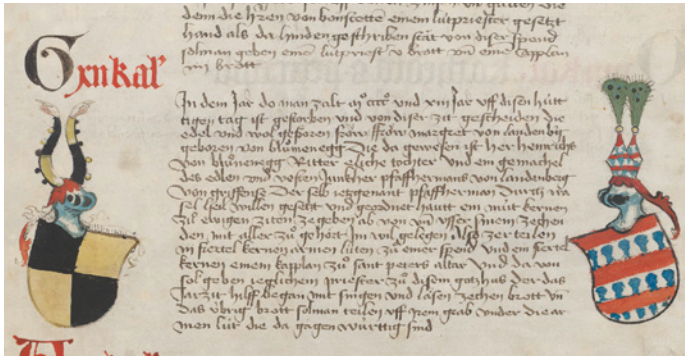 denn die hren von bonstette einem lütpriester gesetzt
hand als da hinden geschriben stat von diser spend
solman geben eine lütpriest v brott vn eine capplan
iiij brott
Gxnkal'
In dem Jar do man zalt m cccc und xiii Jar uff disen hütt
tigen tag ist gestorben und von diser zit gescheiden die
edel und wol geboren frow frow margret von landenbg
geboren von blumenegg Die da gewesen ist her heinrichs
von blumenegg Ritter eliche tochter und ein gemachel
des edlen und vesten Juncher pfaffhermans von landenberg
von griffense Der selb yetzgenant pfaffherman durch ira
sel heil willen gesetzt und geordnet hautt ein müt kernen
zil ewigen ziten ze geben ab von vn usser sinem zechen
den mit aller zu gehört Im wil gelegen also ze teilen
iij fiertel kernen armen lüten zu einer spend und ein fiertel
kernen einem kapplan zu sant peters altar und da von
sol geben yeglichem priester zu disem gotzhus der das
Jarzit hilff began mit singen und läsen zechen brott vn
das übrig brott solman teilen uff irem grab under die ar
men lüt die da gagen württig sind